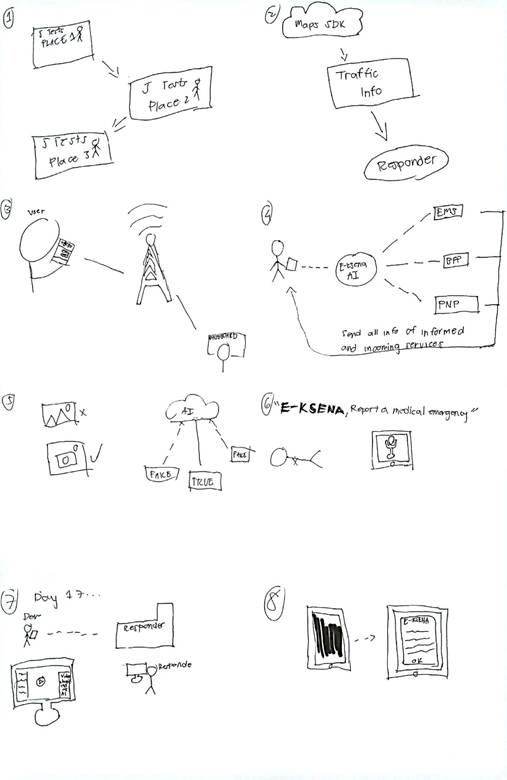 1
5 Tests
PLACE 1
5 Tests
Place 2
5 Tests
Place 3
2
Maps SDK
Traffic
Info
Responder
3
User
4
EMS
E-ksena
AI
BFP
PNP
Send all info of informed
and incoming services
5
x
AI
FAKE
TRUE
FAKE
6
"E-KSENA, Report a medical emergency"
7
Day 17...
Dev
Responder
Responde
8
E-KSENA
OK